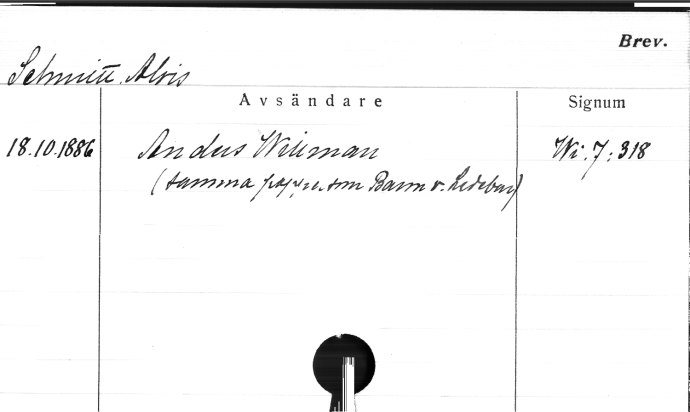 Brev.
Schmitt, Alois
Avsändare
Signum
18.10.1886
Anders Willman
Wi: 7: 318
(samma papper som Baron v. Ledebur)